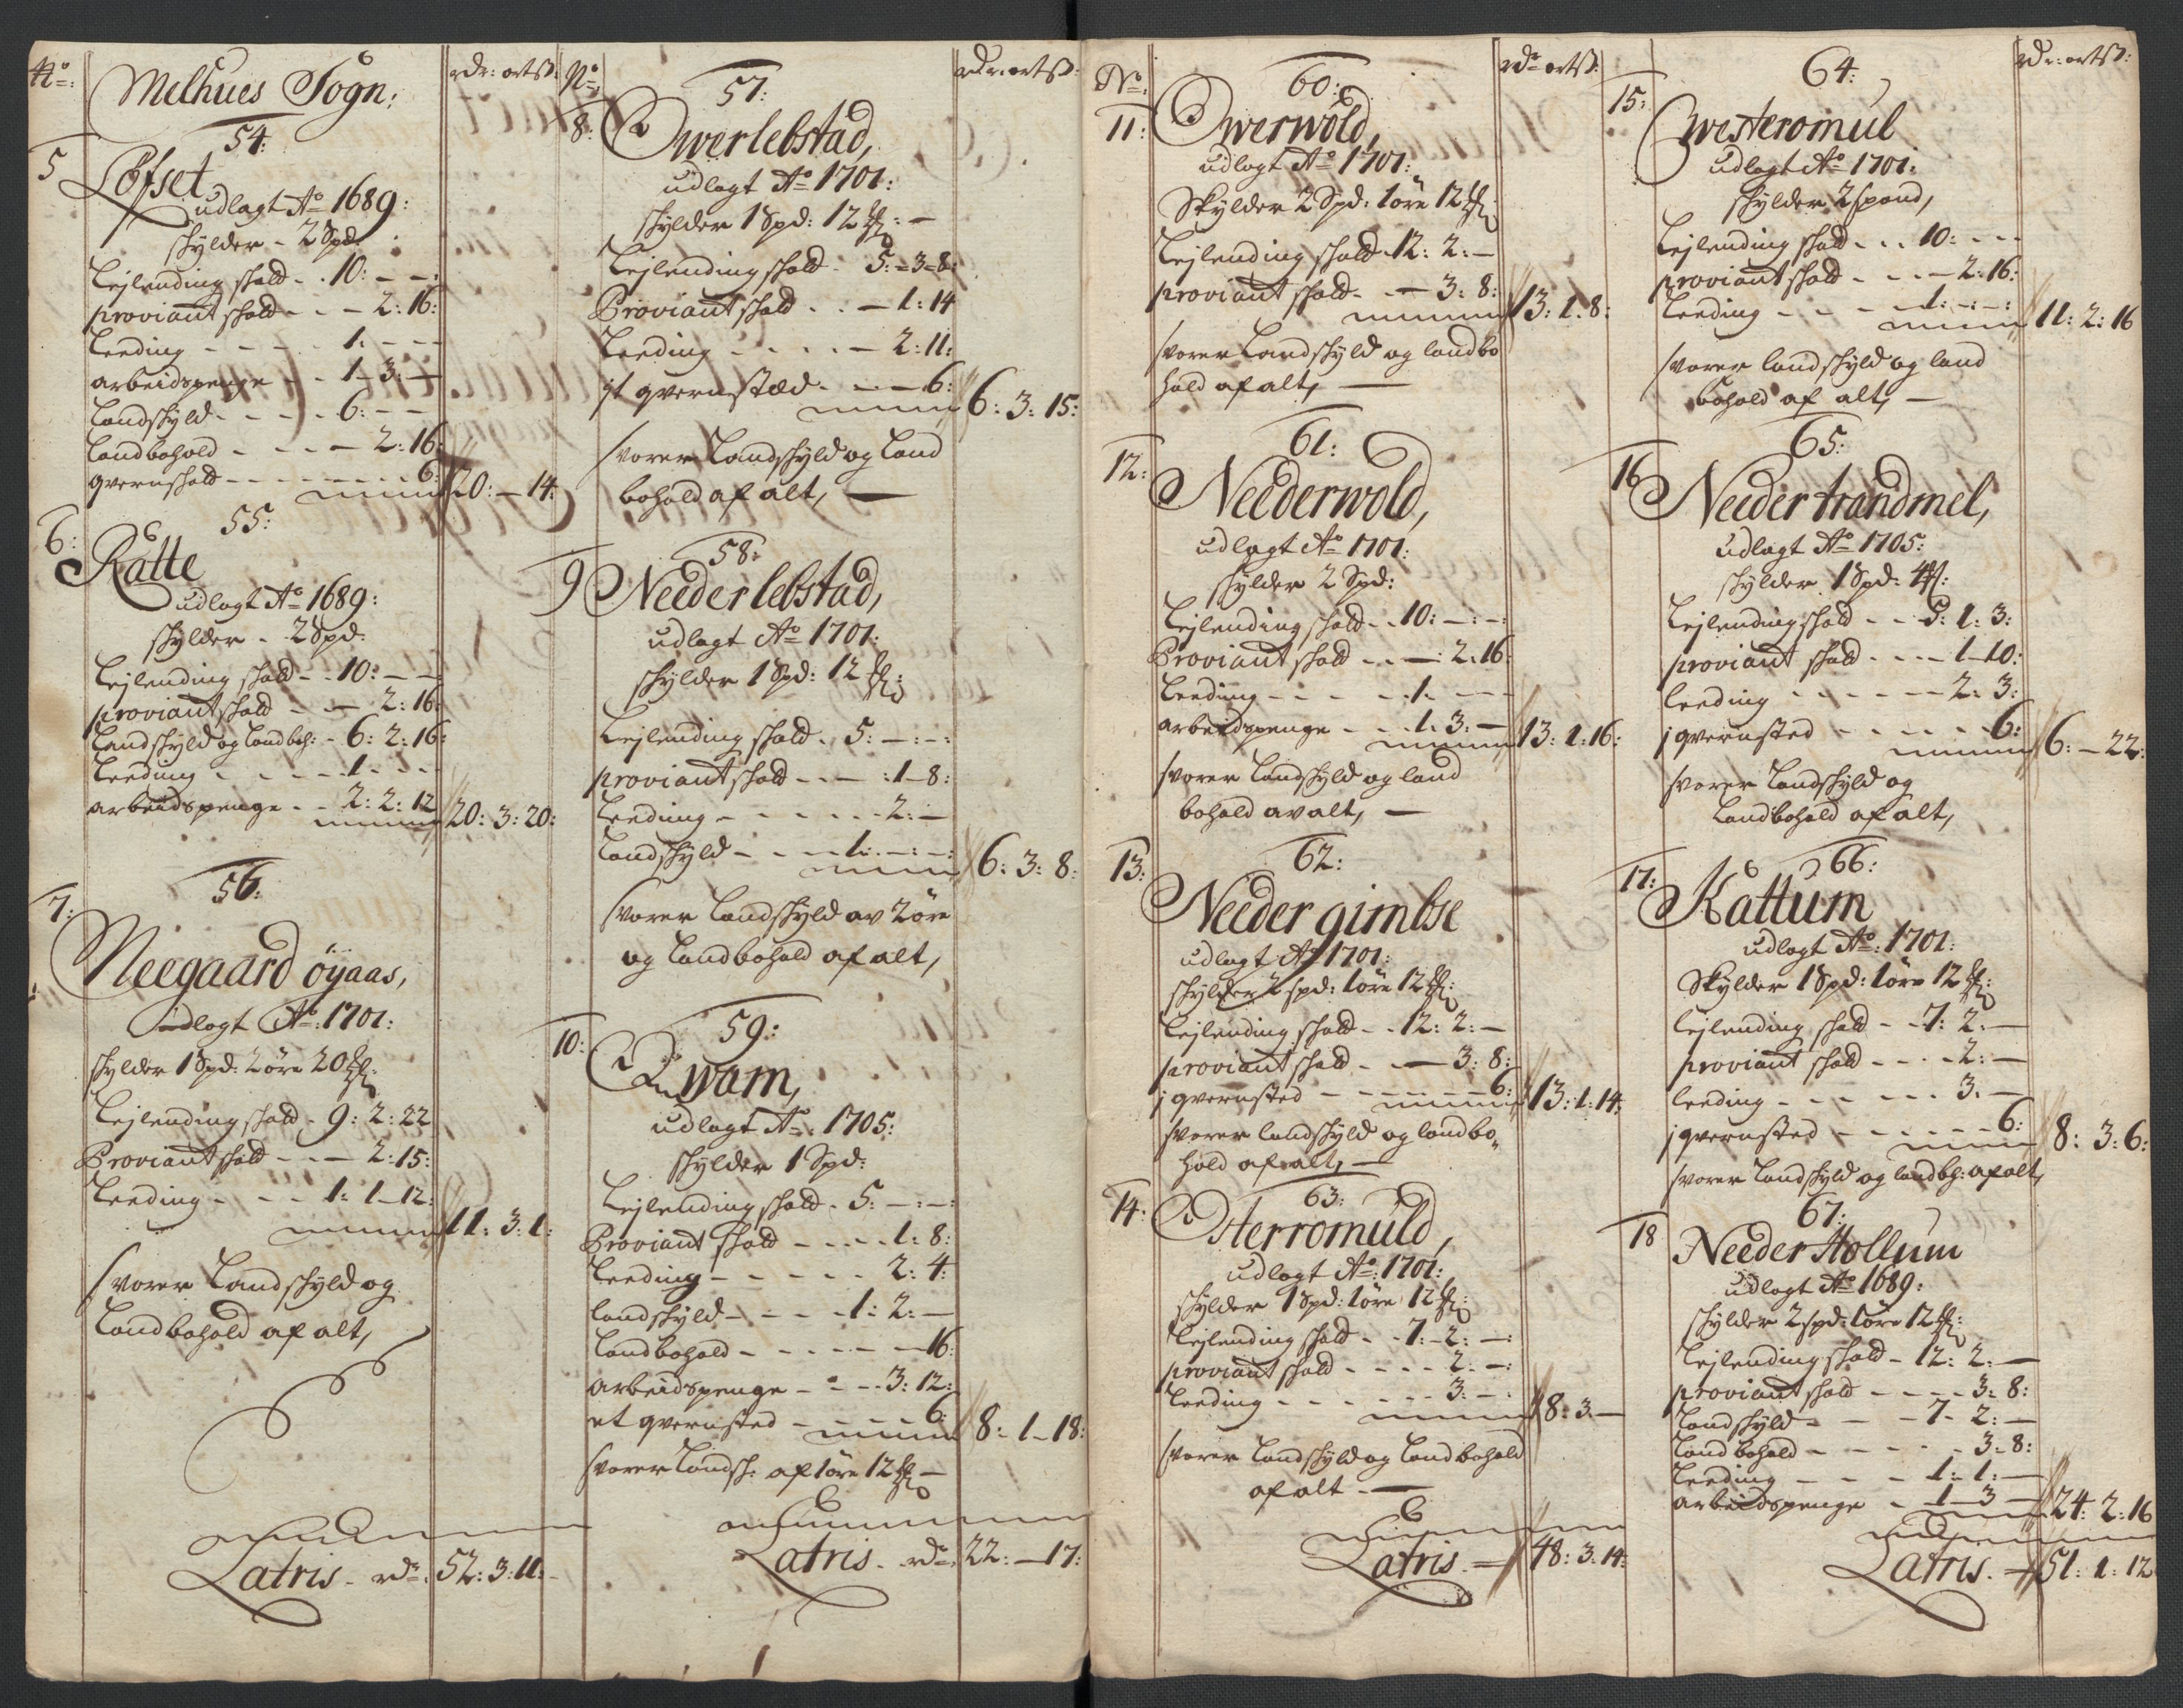 No:
Melhues Sogn:
rdr: ort ß:
54:
5
Løfset
udlagt Ao 1689:
skylder - 2 Spd:
Lejlending skatt - - 10: - -
proviant skatt - - - 2: 16:
Leeding - - - - 1: - - -
arbeidspenge - - 1 - 3: -
Landskyld - - - - 6: - -
Landbohold - - - - 2: 16:
qvernskatt - - - - - - 6:
20: - 14:
55:
6:
Ratte
udlagt Ao 1689:
skylder - 2 Spd:
Lejlending skatt - - 10: - -
proviant skatt - - 2: 16:
Landskyld og Landboh: - 6: 2: 16:
Leeding - - - - 1 - - -
arbeidspenge - - 2: 2: 12
20: 3: 20:
56:
7:
Neegaard öyaas,
udlagt Ao: 1701:
skylder 1 Spd: 2 öre 20 ℔:
Lejlending skatt - 9: 2: 22
Proviant skatt - - - 2: 15:
Leeding - - - 1: 1 - 12:
11: 3: 1:
svarer Landskyld og
Landbohold af alt,
Latris - rdr: 52: 3: 11:
No:
57:
rdr: ort ß:
8:
Owerlebstad,
udlagt Ao 1701:
skylder 1 Spd: 12 ℔: -
Lejlending skatt - 5: - 3 - 8:
Proviant skatt - - - 1: 14
Leeding - - - - - 2: 11:
jt qvernstæd - - - - 6:
6: 3: 15:
svarer Landskyld og Land
bohold af alt, -
58:
9
Neederlebstad,
udlagt Ao 1701:
skylder 1 Spd: 12 ℔:
Lejlending skatt - 5: - : - :
proviant skatt - - - : 1 - 8:
Leeding - - - - - - 2: -
Landskyld - - - - 1: - : - :
6: 3: 8:
svarer Landskyld av 2 öre
og Landbohold af alt,
59:
10:
Qwam,
udlagt Ao: 1705:
skylder 1 Spd:
Lejlending skatt - 5: - : - :
Proviant skatt - - - - 1: 8:
Leeding - - - - - 2: 4:
landskyld - - - - 1: 2: -
Landbohold - - - - - - 16:
arbeidspenge - - - - 3: 12:
et qvernsted - - - - - 6:
8: - 1 - 18:
svarer Landsk: af 1 öre 12 ℔ -
Latris - rdr: 22: - 17:
No:
60:
rdr ort ß:
11:
Owerwold,
udlagt Ao 1701:
Skylder 2 Spd: 1 öre 12 ℔
Lejlending skatt - 12: 2: -
proviant skatt - - - 3: 8:
13: 1: 8:
svarer Landskyld og landbo
hold af alt, -
61:
12:
Neederwold,
udlagt Ao 1701:
skylder 2 Spd:
Lejlending skatt - - 10: - : - :
Proviant skatt - - - : 2: 16:
Leeding - - - - - 1 - - - -
arbeidspenge - - - 1: 3: -
13: 1: 16:
svarer Landskyld og land
bohold av alt, -
62:
13:
Needer gimbse
udlagt Ao 1701:
skylder 2 spd: 1 öre 12 ℔:
Lejlending skatt - - 12: 2: -
proviant skatt - - - 3: 8:
j qvernsted - - - - - - - 6:
13: 1: 14:
svarer landskyld og landbo
hold af alt, -
63:
14:
Osterromuld,
udlagt Ao: 1701:
skylder 1 Spd: 1 öre 12 ℔:
Lejlending skatt - - 7: - 2: - :
proviant skatt - - - - 2: - :
Leeding - - - - - - 3: - :
8: 3: -
svarer Landskyld og Landbohold
af alt - -
Latris - 48: 3: 14:
64:
rdr: ort ß:
15:
Westeromul
udlagt Ao 1701:
skylder 2 spand,
Lejlending skatt - - - 10: - - -
proviant skatt - - - - 2: 16:
Leeding - - - - 1: - : - :
11: 2: 16
svarer landskyld og land
bohold af alt, -
65:
16
Needer trandmel,
udlagt Ao 1705:
skylder 1 Spd: 4 ℔:
Lejlending skatt - - 5: 1: 3:
proviant skatt - - - - 1 - 10:
leeding - - - - - - - 2: 3:
j qvernsted - - - - - - 6:
6: - 22:
svarer Landskyld og
Landbohold af alt,
66:
17:
Kattum
udlagt Ao: 1701:
Skylder 1 Spd: 1 öre 12 ℔:
lejlending skatt - - 7: 2: -
proviant skatt - - - - 2: -
leeding - - - - - - 3: -
j qvernsted - - - - - - 6:
8: 3: 6:
svarer Landskyld og landbh: af alt,
67:
18
Needer Hollum
udlagt Ao 1689:
skylder 2 spd: 1 öre 12 ℔:
Lejlending skatt - 12: 2: -
proviant skatt - - - - 3: 8:
Landskyld - - - 7 - 2: -
Landbohold - - - - - 3 - 8:
Leeding - - - - 1: - 1: -
arbeidspenge - 1 - 3 -
24: 2: 16
Latris - 51: 1: 12